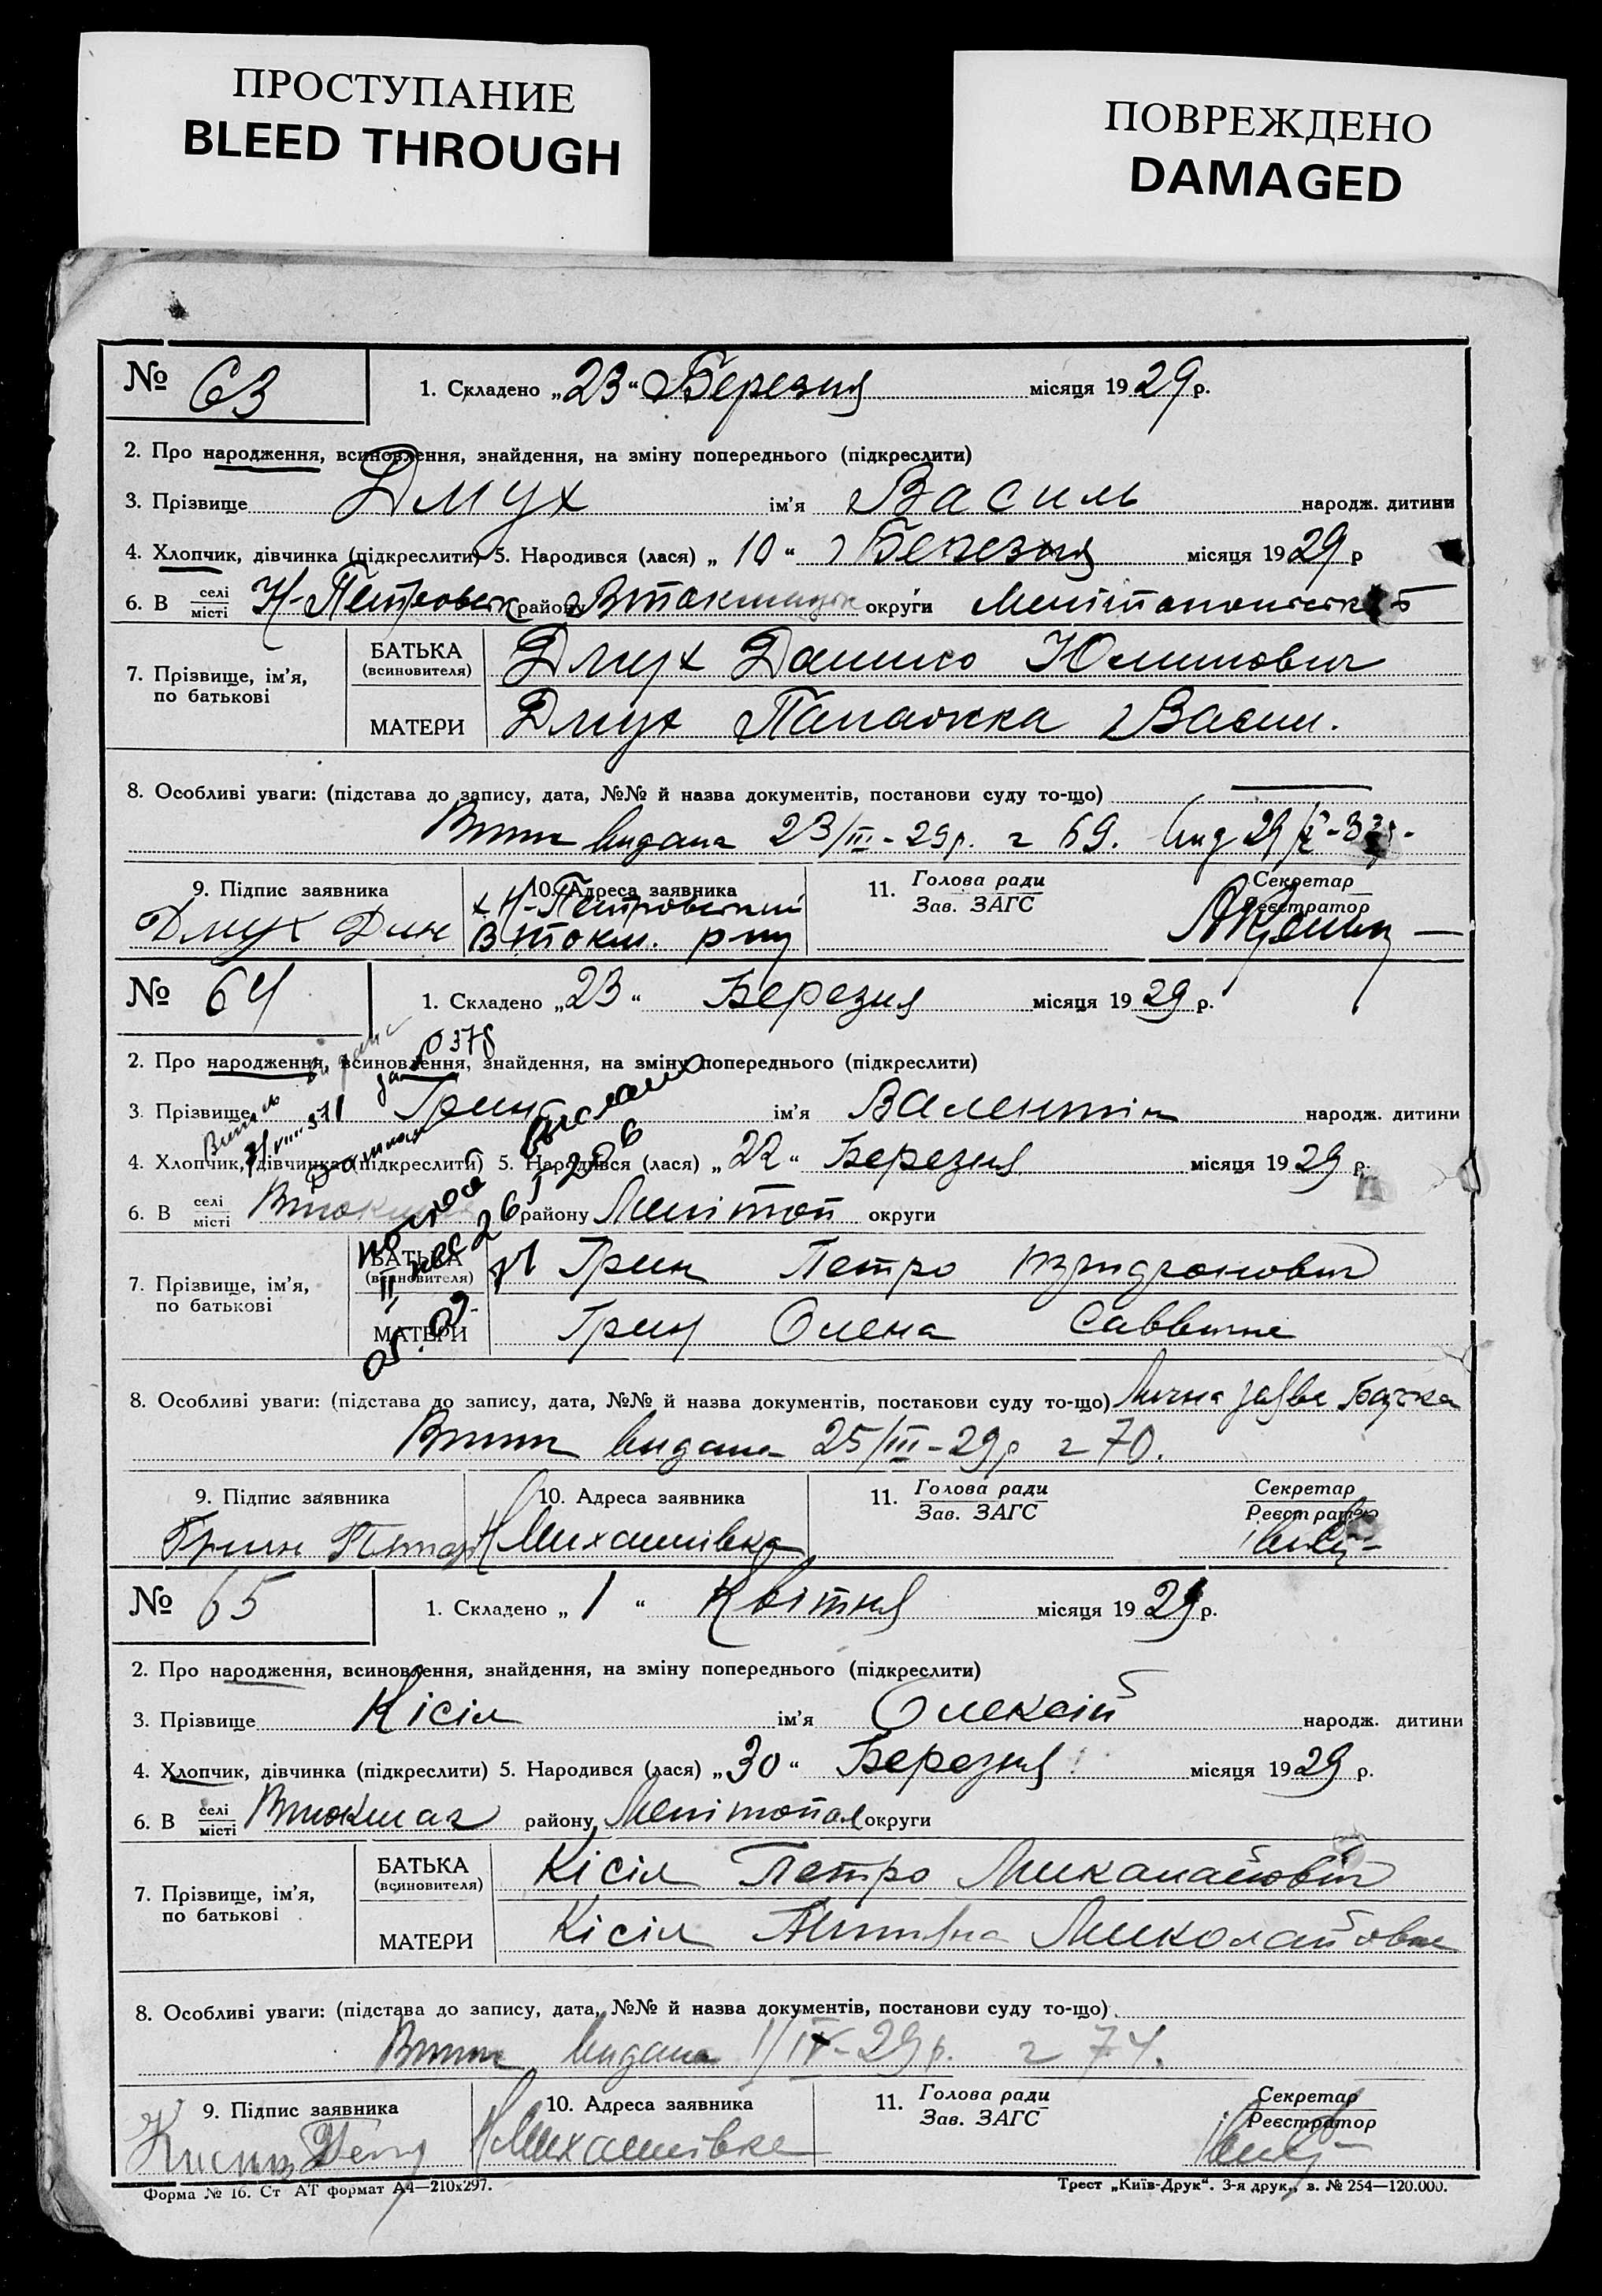 ПРОСТУПАНИЕ
BLEED THROUGH
ПОВРЕЖДЕНО
DAMAGED
№ 63 1. Складено „23“ Березня місяця 1929 р.
2. Про народження, всиновлення, знайдення, на зміну попереднього (підкреслити)
3. Прізвище Дмух ім'я Василь народж. дитини
4. Хлопчик, дівчинка (підкреслити) 5. Народився (лася) „10“ Березня місяця 1929 р
6. В селі/місті Н-Петровськ району ВТокмацьк округи
7. Прізвище, ім'я, по батькові
БАТЬКА (всиновителя) Дмух Данило
МАТЕРИ Дмух Палажка Васил.
8. Особливі уваги: (підстава до запису, дата, №№ й назва документів, постанови суду то-що)
видана 23/III-29р. 69.
9. Підпис заявника 10. Адреса заявника 11. Голова ради Зав. ЗАГС Секретар Реєстратор
Дмух х Н-Петровський
ВТокм. р-ну
№ 64 1. Складено „23“ Березня місяця 1929 р.
0378
2. Про народження, всиновлення, знайдення, на зміну попереднього (підкреслити)
3. Прізвище Грин ім'я Валентін народж. дитини
4. Хлопчик, дівчинка (підкреслити) 5. Народився (лася) „22“ Березня місяця 1929 р.
6. В селі/місті ВТокмак району Мелітоп округи
7. Прізвище, ім'я, по батькові
БАТЬКА (всиновителя) Грин Петро
МАТЕРИ Грин Олена Саввична
8. Особливі уваги: (підстава до запису, дата, №№ й назва документів, постанови суду то-що) Лична заява Батька
видана 25/III-29р 70.
9. Підпис заявника 10. Адреса заявника 11. Голова ради Зав. ЗАГС Секретар Реєстратор
Грин НМихайлівка
№ 65 1. Складено „1“ Квітня місяця 1929 р.
2. Про народження, всиновлення, знайдення, на зміну попереднього (підкреслити)
3. Прізвище Кісіл ім'я Олексій народж. дитини
4. Хлопчик, дівчинка (підкреслити) 5. Народився (лася) „30“ Березня місяця 1929 р.
6. В селі/місті ВТокмак району Мелітопол округи
7. Прізвище, ім'я, по батькові
БАТЬКА (всиновителя) Кісіл Петро Микалайовіч
МАТЕРИ Кісіл Миколайовна
8. Особливі уваги: (підстава до запису, дата, №№ й назва документів, постанови суду то-що)
видана 1/IV-29р. 74.
9. Підпис заявника 10. Адреса заявника 11. Голова ради Зав. ЗАГС Секретар Реєстратор
НМихайлівка
Форма № 16. Ст АТ формат А4—210х297. Трест „Київ-Друк“. 3-я друк., з. № 254—120.000.